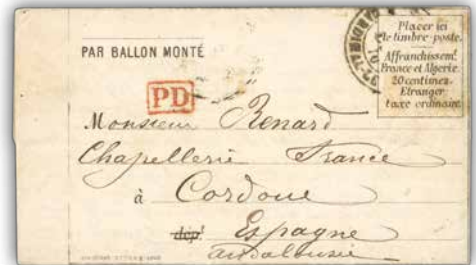 Placer ici
le timbre-poste.
Affranchissemt
France et Algérie
20 centimes.
Etranger
taxe ordinaire
PAR BALLON MONTÉ
PD
Monsieur Renard
Chapellerie France
à Cordoue
dépt Espagne
andalousie